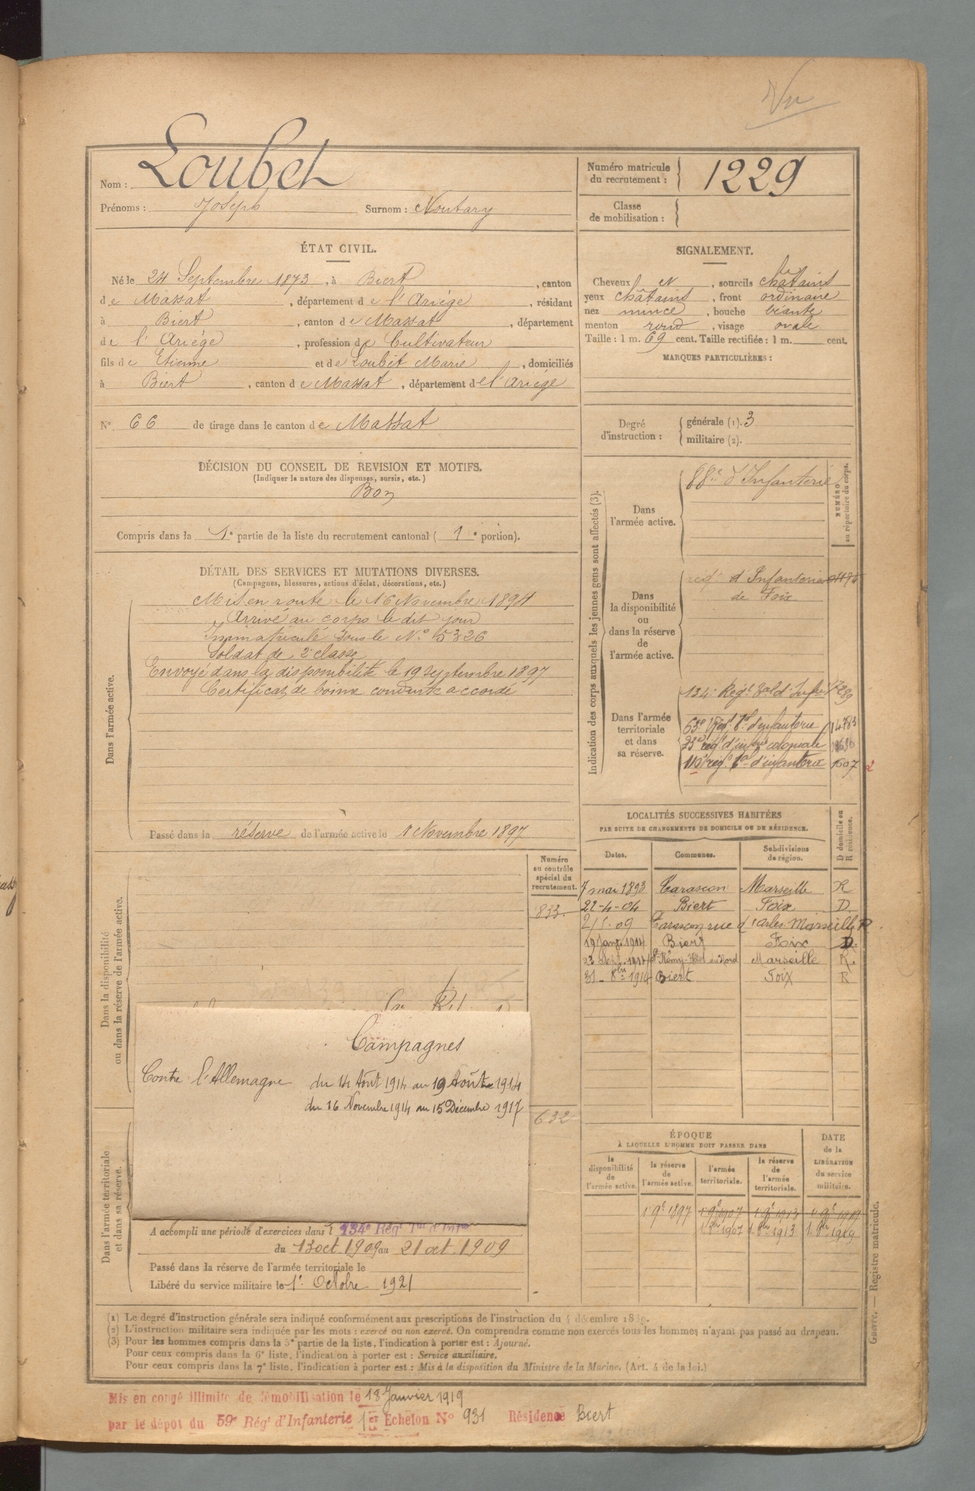 Vu
Nom : Loubet
Prénoms : Joseph Surnom : Noutary
Numéro matricule du recrutement : 1229
Classe de mobilisation :
ÉTAT CIVIL.
Né le 24 Septembre 1873, à Biert, canton
de Massat, département de l'Ariège, résidant
à Biert, canton de Massat, département
de l'Ariège, profession de Cultivateur
fils de Etienne et de Loubet Marie, domiciliés
à Biert, canton de Massat, département de l'Ariège
N° 66 de tirage dans le canton de Massat
SIGNALEMENT.
Cheveux N, sourcils châtains
yeux châtains, front ordinaire
nez mince, bouche béante
menton rond, visage ovale
Taille : 1 m. 69 cent. Taille rectifiée : 1 m. cent.
MARQUES PARTICULIÈRES :
Degré d'instruction :
générale (1). 3
militaire (2).
DÉCISION DU CONSEIL DE REVISION ET MOTIFS.
(Indiquer la nature des dispenses, sursis, etc.)
Bon
Compris dans la 1e partie de la liste du recrutement cantonal ( 1e portion).
DÉTAIL DES SERVICES ET MUTATIONS DIVERSES.
(Campagnes, blessures, actions d'éclat, décorations, etc.)
Dans l'armée active.
Mis en route le 16 Novembre 1894
Arrivé au corps le dit jour
Immatriculé sous le N° 5326
Soldat de 2e classe
Envoyé dans la disponibilité le 19 Septembre 1897
Certificat de bonne conduite accordé
Passé dans la réserve de l'armée active le 1 Novembre 1897
Indication des corps auxquels les jeunes gens sont affectés (3).
NUMÉRO au répertoire du corps.
Dans l'armée active.
88e d'Infanterie
Dans la disponibilité ou dans la réserve de l'armée active.
régt d'Infanterie
de Foix
Dans l'armée territoriale et dans sa réserve.
134e Régt Tal d'Infrie
63e Régt Tal d'infanterie 14783
33e regt d'infie coloniale
112e regt Tal d'infanterie 1607
LOCALITÉS SUCCESSIVES HABITÉES
PAR SUITE DE CHANGEMENTS DE DOMICILE OU DE RÉSIDENCE.
Dates. Communes. Subdivisions de région. D domicile ou R résidence.
7 mai 1898 Tarascon Marseille R
22-4-04 Biert Foix D
09 Tarascon rue d'Arles Marseille R
19 Janv. 1914 Biert Foix D.
Marseille R.
31 8bre 1914 Biert Foix R
Numéro au contrôle spécial du recrutement.
833
632
Dans la disponibilité ou dans la réserve de l'armée active.
Campagnes
Contre l'Allemagne du 14 Août 1914 au 19 Août 1914
du 16 Novembre 1914 au 15 Décembre 1917
Dans l'armée territoriale et dans sa réserve.
A accompli une période d'exercices dans l 134e Régt Tal d'Infie
du 13 oct 1909 au 21 oct 1909
Passé dans la réserve de l'armée territoriale le
Libéré du service militaire le 1er Octobre 1921
ÉPOQUE
À LAQUELLE L'HOMME DOIT PASSER DANS
DATE de la LIBÉRATION du service militaire.
la disponibilité de l'armée active. la réserve de l'armée active. l'armée territoriale. la réserve de l'armée territoriale.
1 9e 1897 1 9e 1907 1 9e 1913 1 9e 1919
1 8bre 1907 1 8bre 1913 1 8bre 1919
Registre matricule.
(1) Le degré d'instruction générale sera indiqué conformément aux prescriptions de l'instruction du 4 décembre 1889.
(2) L'instruction militaire sera indiquée par les mots : exercé ou non exercé. On comprendra comme non exercés tous les hommes n'ayant pas passé au drapeau.
(3) Pour les hommes compris dans la 5e partie de la liste, l'indication à porter est : Ajourné.
Pour ceux compris dans la 6e liste, l'indication à porter est : Service auxiliaire.
Pour ceux compris dans la 7e liste, l'indication à porter est : Mis à la disposition du Ministre de la Marine. (Art. 4 de la loi.)
Mis en congé illimité de démobilisation le 18 Janvier 1919
par le dépôt du 59e Régt d'Infanterie 1er Echelon N° 931 Résidence Biert